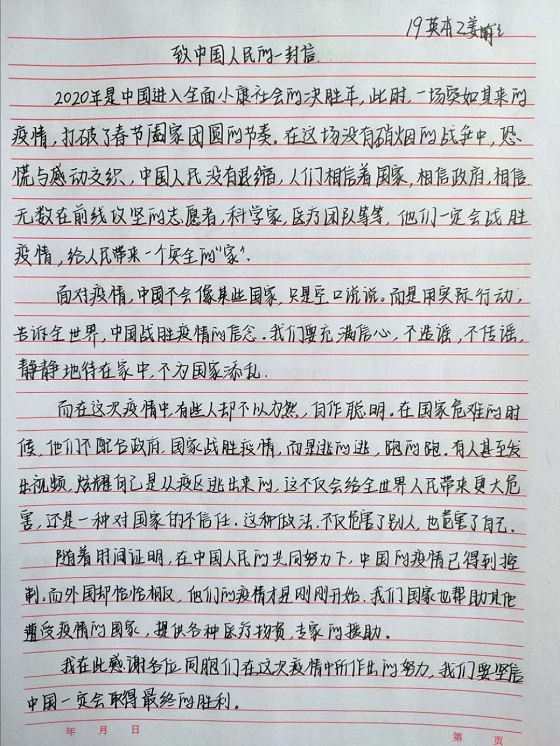 19英本2姜
致中国人民的一封信
2020年是中国进入全面小康社会的决胜年,此时,一场突如其来的
疫情,打破了春节阖家团圆的节奏。在这场没有硝烟的战争中,恐
慌与感动交织,中国人民没有退缩,人们相信着国家,相信政府,相信
无数在前线攻坚的志愿者,科学家,医疗团队等等,他们一定会战胜
疫情,给人民带来一个安全的“家”.
面对疫情,中国不会像某些国家,只是空口说说。而是用实际行动,
告诉全世界,中国战胜疫情的信念。我们要充满信心,不造谣,不传谣,
静静地待在家中,不为国家添乱.
而在这次疫情中,有些人却不以为然,自作聪明。在国家危难的时
候,他们不配合政府,国家战胜疫情,而是逃的逃,跑的跑。有人甚至发
出视频,炫耀自己是从疫区逃出来的,这不仅会给全世界人民带来更大危
害,还是一种对国家的不信任.这种做法,不仅危害了别人,也危害了自己.
随着时间证明,在中国人民的共同努力下,中国的疫情已得到控
制,而外国却恰恰相反,他们的疫情才是刚刚开始.我们国家也帮助其他
遭受疫情的国家,提供各种医疗物资,专家的援助。
我在此感谢各位同胞们在这次疫情中所作出的努力,我们要坚信
中国一定会取得最终的胜利。
年 月 日 第 页